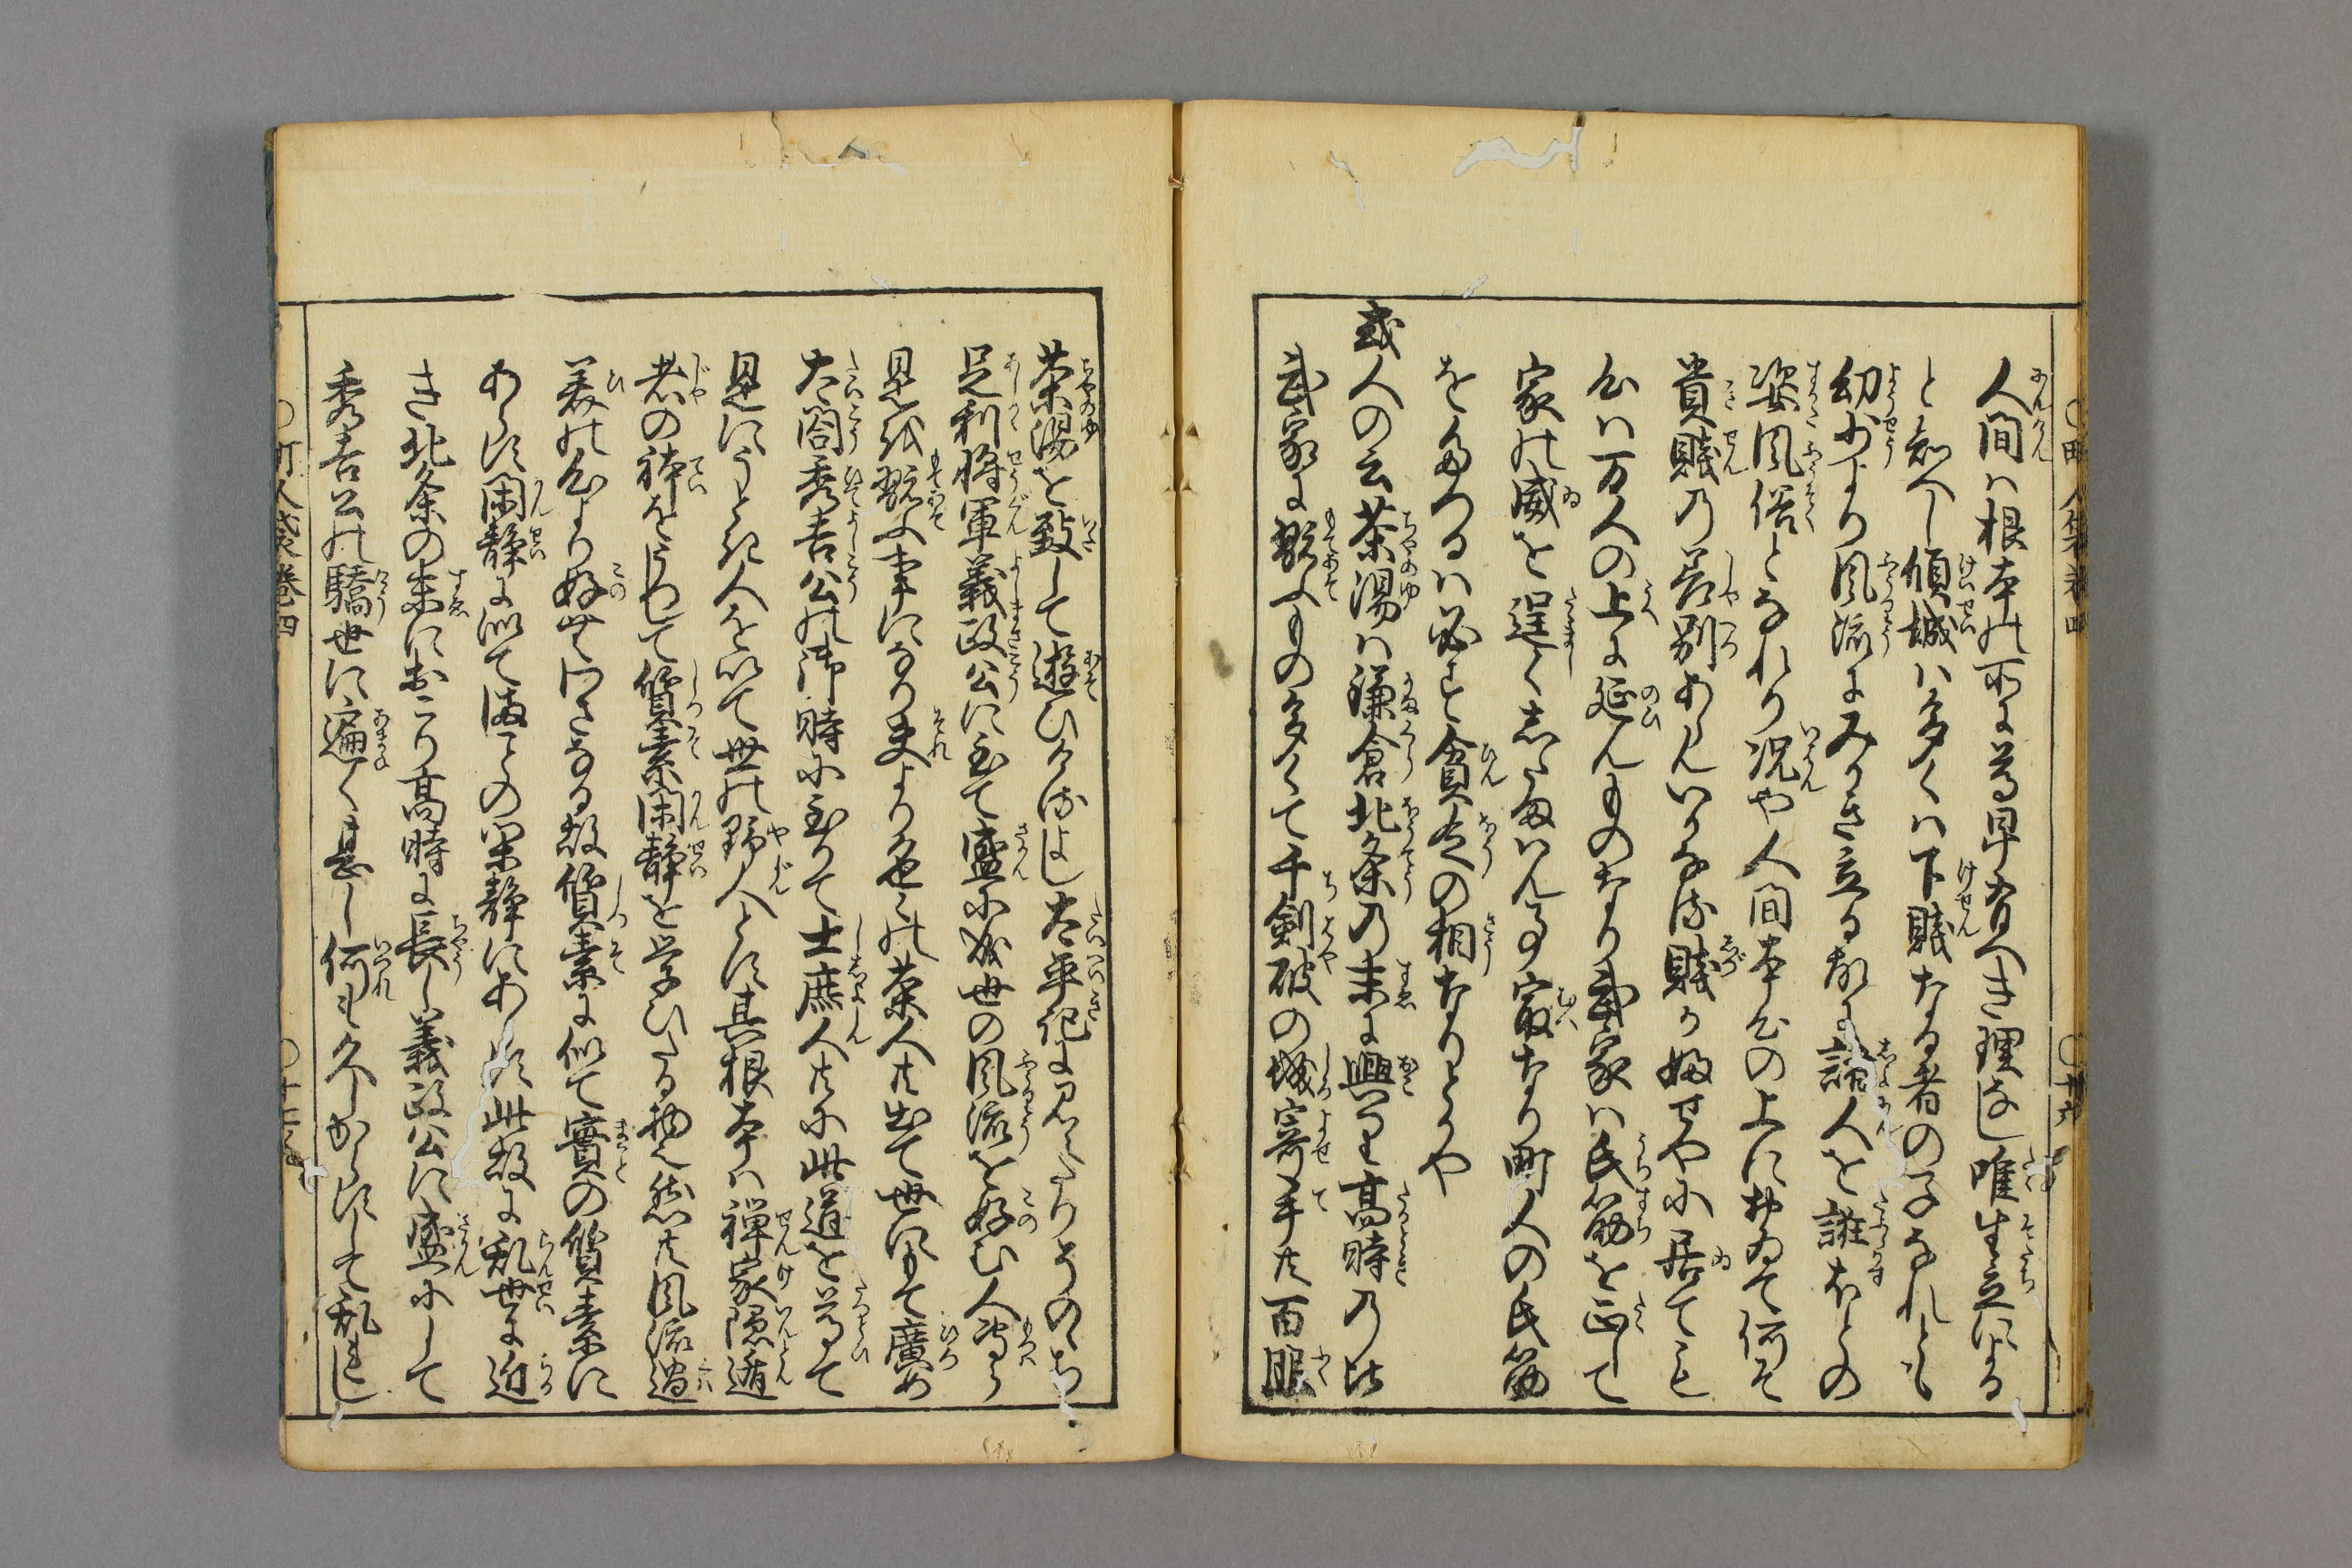 人間は根本の所に尊卑有へき理なし唯生立による
と知へし傾城は多くは下賤なる者の子なれとも
幼少より風流にみかき立る故に諸人を誑すほとの
姿風俗となれり況や人間本心の上におゐて何そ
貴賤の差別あらんいかなる賤か婦せやに居ても
心は万人の上に延んものなり武家は氏筋を正して
家の威を逞くしたまはん事家なり町人の氏筋
をたつるは必す貧乏の相なりとかや
或人の云茶湯は鎌倉北条の末に興りて高時の比
武家に翫ふもの多くて千剣破の城寄手共百服
茶湯を致して遊ひけるよし太平記に見えたりそのゝち
足利将軍義政公に至て盛に成世の風流を好む人専ら
是を翫ふ事になり夫より色々の茶人共出て世にもて廣め
太閤秀吉公の御時に至りて士庶人共に此道を尊て
是にうとき人を以て世の野人とす其根本は禅家隠遁
者の禅をうつして質素閑静を学ひたる物也然共風流過
美の心より好む所さなる故質素に似て實の質素に
あらす閑静に似て満ことの閑静にあらす此故に乱世に近
き北条の末におこり高時に長し義政公に盛にして
秀吉公の驕世に遍く甚し何も久しからすして乱れし
町人袋巻四